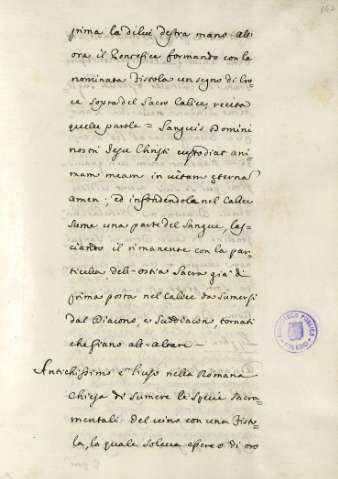 prima la di lui destra mano. All-
ora il Pontefice formando con la
nominata Fistola un segno di Cro-
ce sopra del Sacro Calice, recita
quelle parole = Sanguis Domini
nostri Jesu Christi custodiat ani
mam meam in vitam æternam
amen; ed infondendola nel Calice
sume una parte del Sangue, las-
ciando il rimanente con la par-
ticella dell'ostia Sacra già di
prima posta nel Calice da sumersi
dal Diacono, e Suddiacono, tornati
che siano all'Altare.
Antichissimo è l'uso nella Romana
Chiesa di sumere le specie Sacra-
mentali del vino con una Fisto-
la, la quale soleva essere o di oro
BIBLIOTECA PUBLICA
TOLEDO